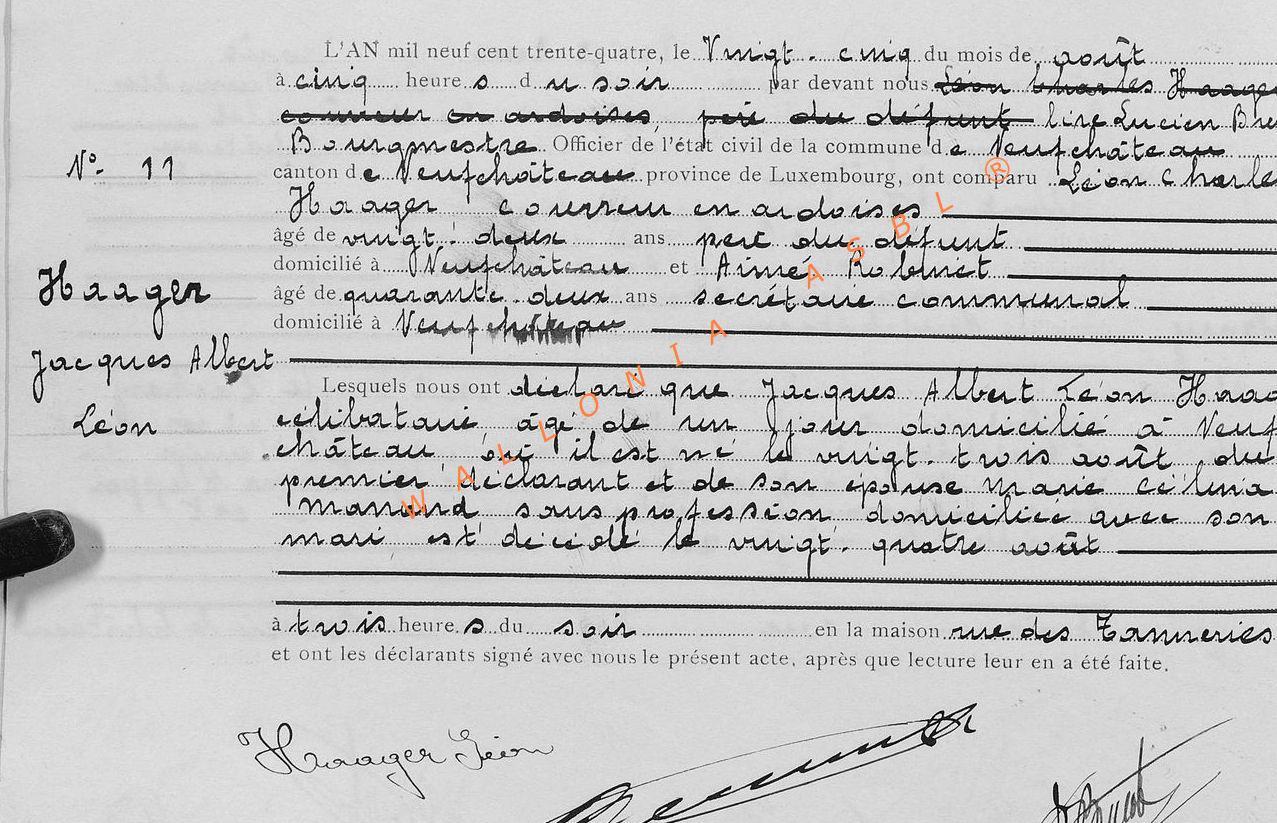 L'AN mil neuf cent trente-quatre, le Vingt-cinq du mois de août
à cinq heures du soir par devant nous Léon Charles Haager
couvreur en ardoises, père du défunt lire Lucien
Bourgmestre Officier de l'état civil de la commune de Neufchâteau
N° 11
canton de Neufchâteau province de Luxembourg, ont comparu Léon Charle
Haager couvreur en ardoises
âgé de vingt-deux ans père du défunt
domicilié à Neufchâteau et Aimé
Haager
âgé de quarante-deux ans secrétaire communal
domicilié à Neufchâteau
Jacques Albert
Lesquels nous ont déclaré que Jacques Albert Léon Haag
Léon
célibataire âgé de un jour domicilié à Neuf
château, où il est né le vingt-trois août du
premier déclarant et de son épouse Marie Célina
Manand sans profession domiciliée avec son
mari est décédé le vingt-quatre août
à trois heures du soir en la maison rue des Tanneries
et ont les déclarants signé avec nous le présent acte, après que lecture leur en a été faite.
Haager Léon
WALLONIA ASBL ®